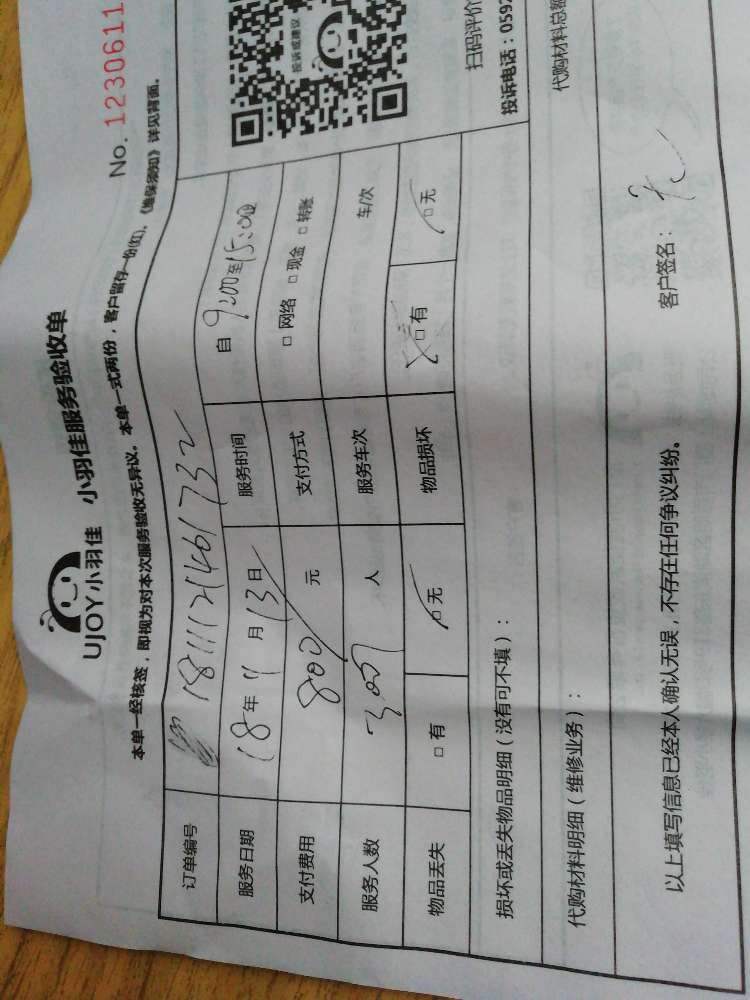 No. 1230611
UJOY小羽佳 小羽佳服务验收单
本单一经核签，即视为对本次服务验收无异议。本单一式两份，客户留存一份(红)。《维保须知》详见背面。
订单编号 1811121461732
服务日期 18年11月13日 服务时间 自9:00至15:00
支付费用 800元 支付方式 □ 网络 □ 现金 □ 转账
服务人数 人 服务车次 车/次
物品丢失 □ 有 □ 无 物品损坏 □ 有 □ 无
投诉或建议
扫码评价
投诉电话：0592
损坏或丢失物品明细（没有可不填）：
代购材料明细（维修业务）： 代购材料总额
以上填写信息已经本人确认无误，不存在任何争议纠纷。 客户签名：